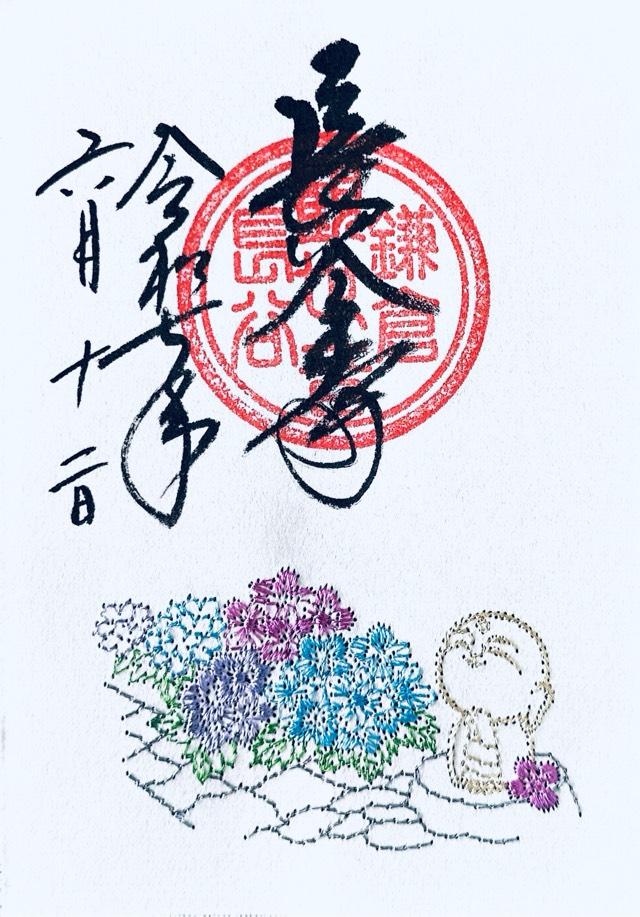 鎌倉
長谷
長谷寺
令和七年
六月十二日